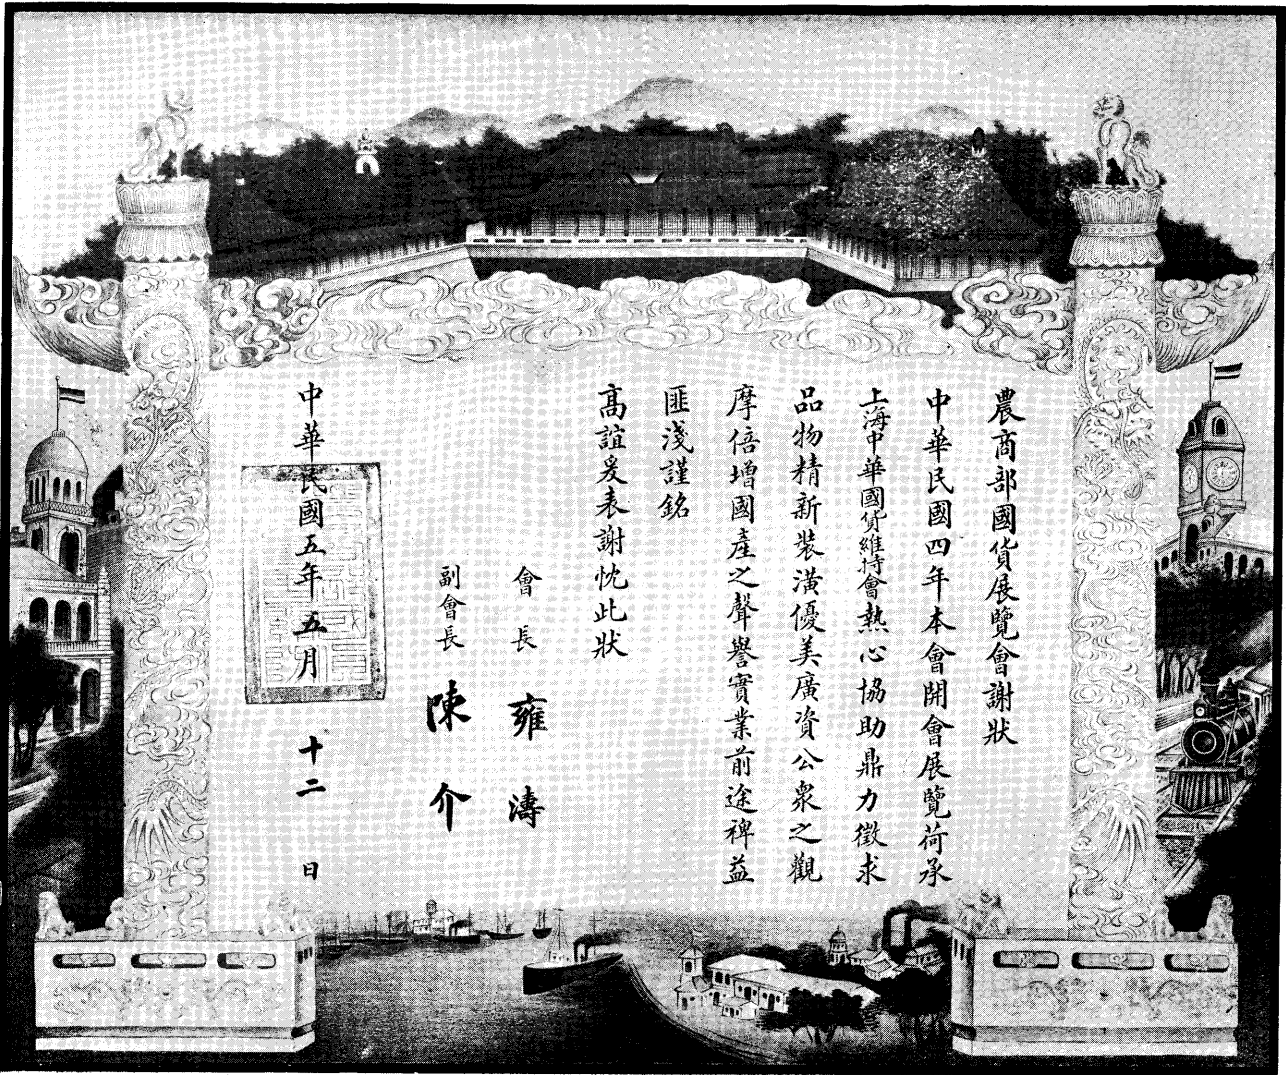 農商部國貨展覽會謝狀
中華民國四年本會開會展覽荷承
上海中華國貨維持會熱心協助鼎力徵求
品物精新裝潢優美廣資公衆之觀
摩倍增國產之聲譽實業前途裨益
匪淺謹銘
高誼爰表謝忱此狀
會長 雍濤
副會長 陳介
中華民國五年五月十二日